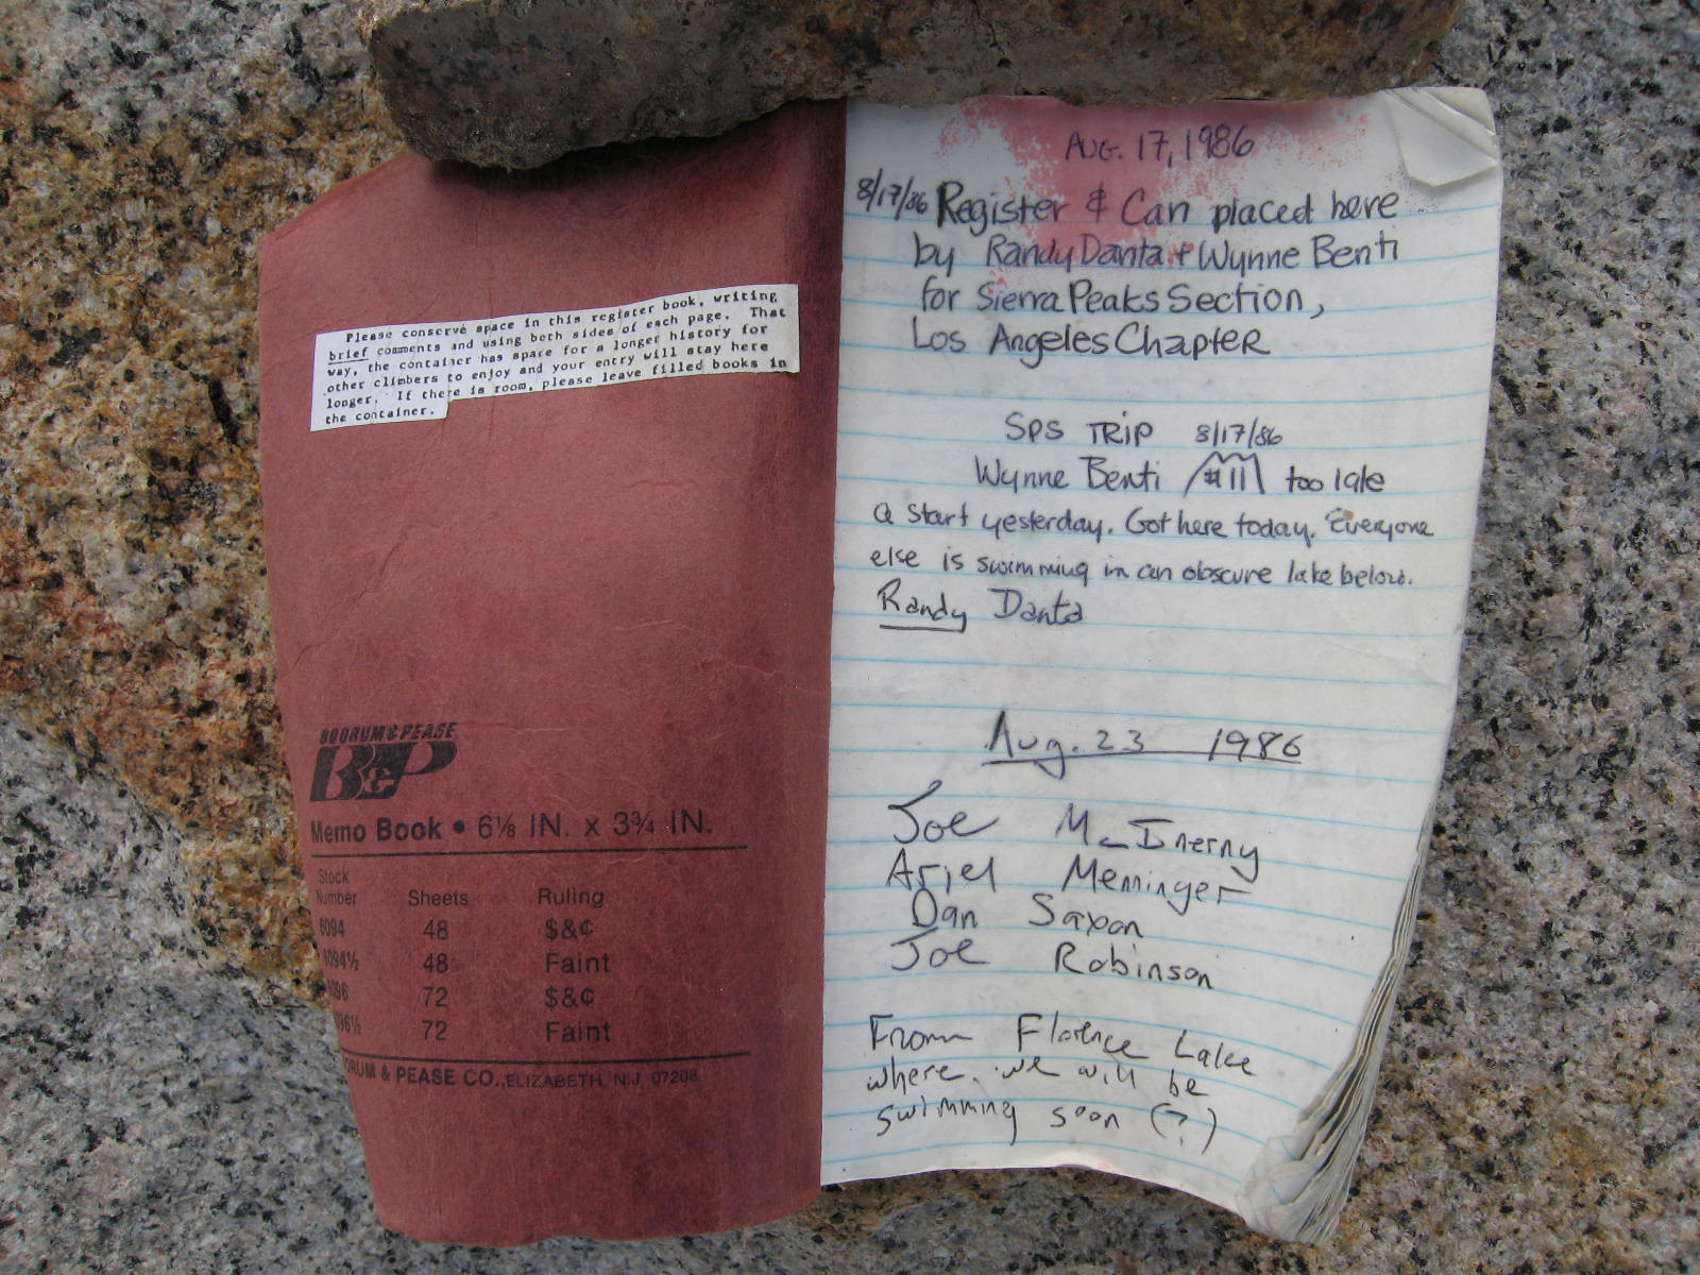 Please conserve space in this register book, writing
brief comments and using both sides of each page. That
way, the container has space for a longer history for
other climbers to enjoy and your entry will stay here
longer. If there is room, please leave filled books in
the container.
BOORUM & PEASE
B&P
Memo Book • 6⅛ IN. x 3¾ IN.
Stock
Number Sheets Ruling
6094 48 $&¢
6094½ 48 Faint
6096 72 $&¢
96½ 72 Faint
ORUM & PEASE CO., ELIZABETH, N.J. 07208
AUG. 17, 1986
8/17/86 Register & Can placed here
by Randy Danta + Wynne Benti
for Sierra Peaks Section,
Los Angeles Chapter
SPS TRIP 8/17/86
Wynne Benti #11 too late
a start yesterday. Got here today. Everyone
else is swimming in an obscure lake below.
Randy Danta
Aug. 23 1986
Joe McInerny
Ariel Meminger
Dan Saxon
Joe Robinson
From Florence Lake
where we will be
swimming soon (?)